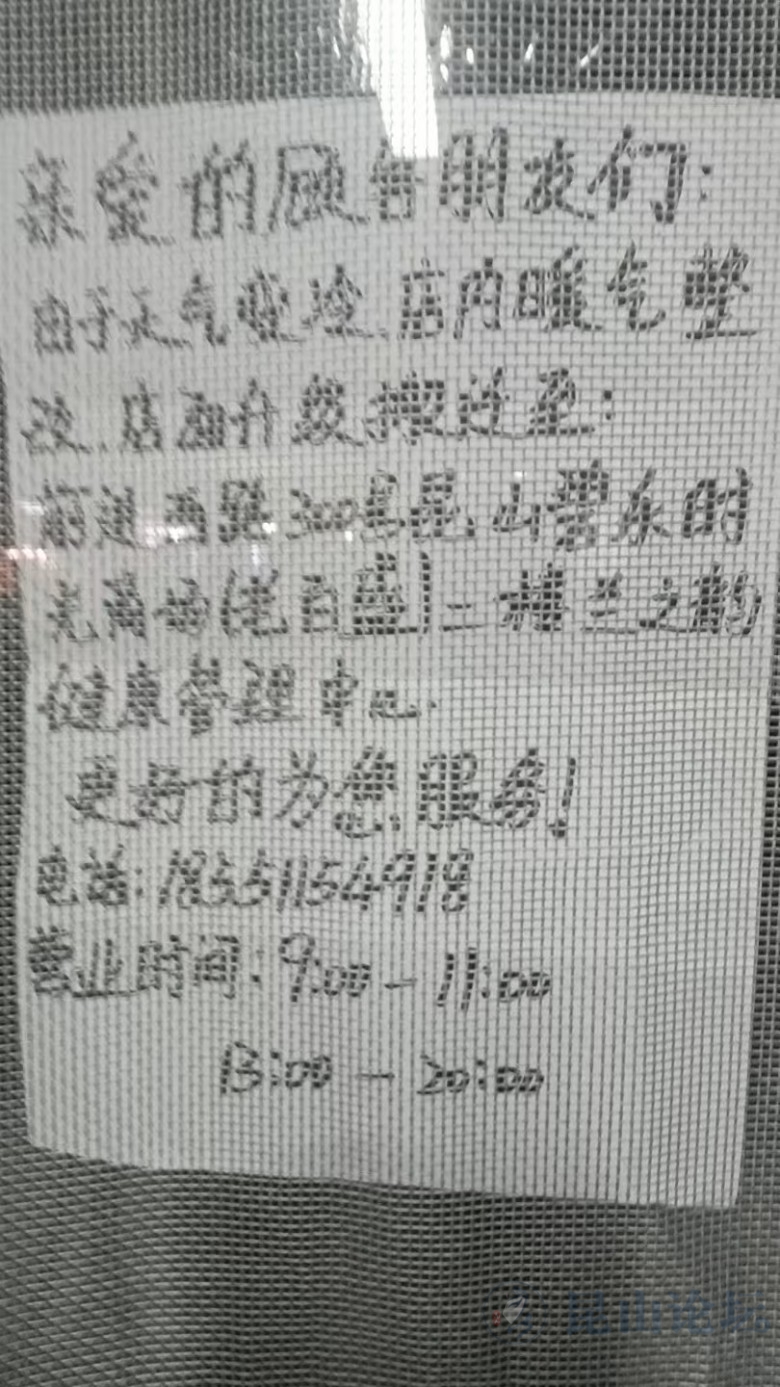 亲爱的顾客朋友们:
由于天气变冷.店内暖气整
改.店面升级搬迁至:
前进西路300号昆山碧乐时
光商场(老百盛)二楼兰之韵
健康管理中心.
更好的为您服务!
电话:18551154918
营业时间:9:00-11:00
13:00-20:00
昆山论坛